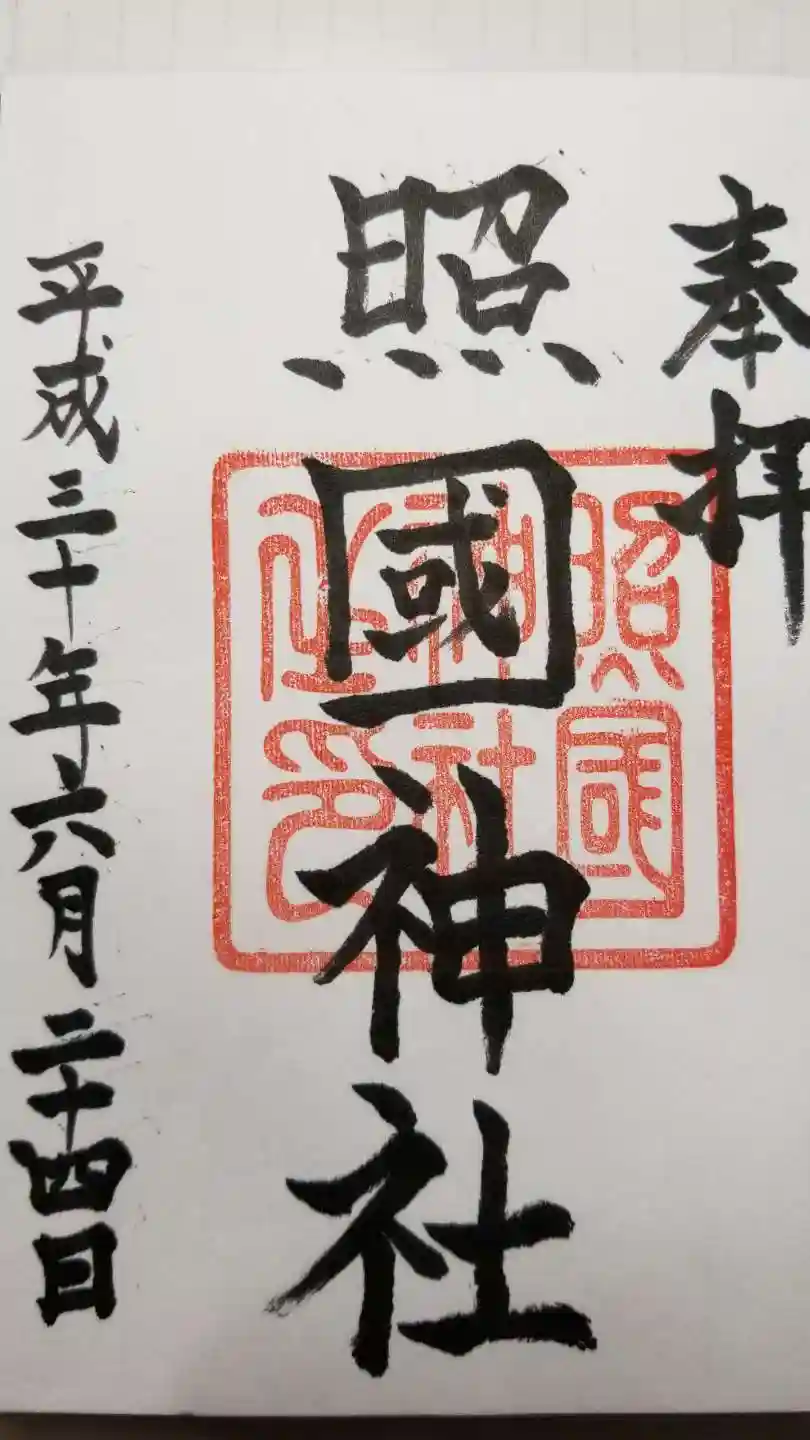 奉拝
照國神社
照國
神社
之印
平成三十年六月二十四日